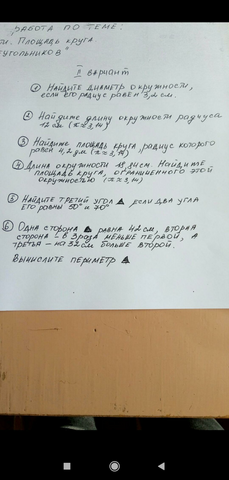 РАБОТА ПО ТЕМЕ:
Площадь круга
УГОЛЬНИКОВ"
II вариант
① Найдите диаметр окружности,
если его радиус равен 3,2 см.
② Найдите длину окружности радиуса
12 см. (π≈3,14)
③ Найдите площадь круга, радиус которого
равен 4,2 дм (π≈3,14)
④ Длина окружности см. Найдите
площадь круга, ограниченного этой
окружностью (π≈3,14)
⑤ Найдите третий угол ▲ если два угла
его равны 50° и 70°
⑥ Одна сторона ▲ равна 42 см, вторая
сторона - в 3 раза меньше первой, а
третья - на 32 см больше второй.
Вычислите периметр ▲